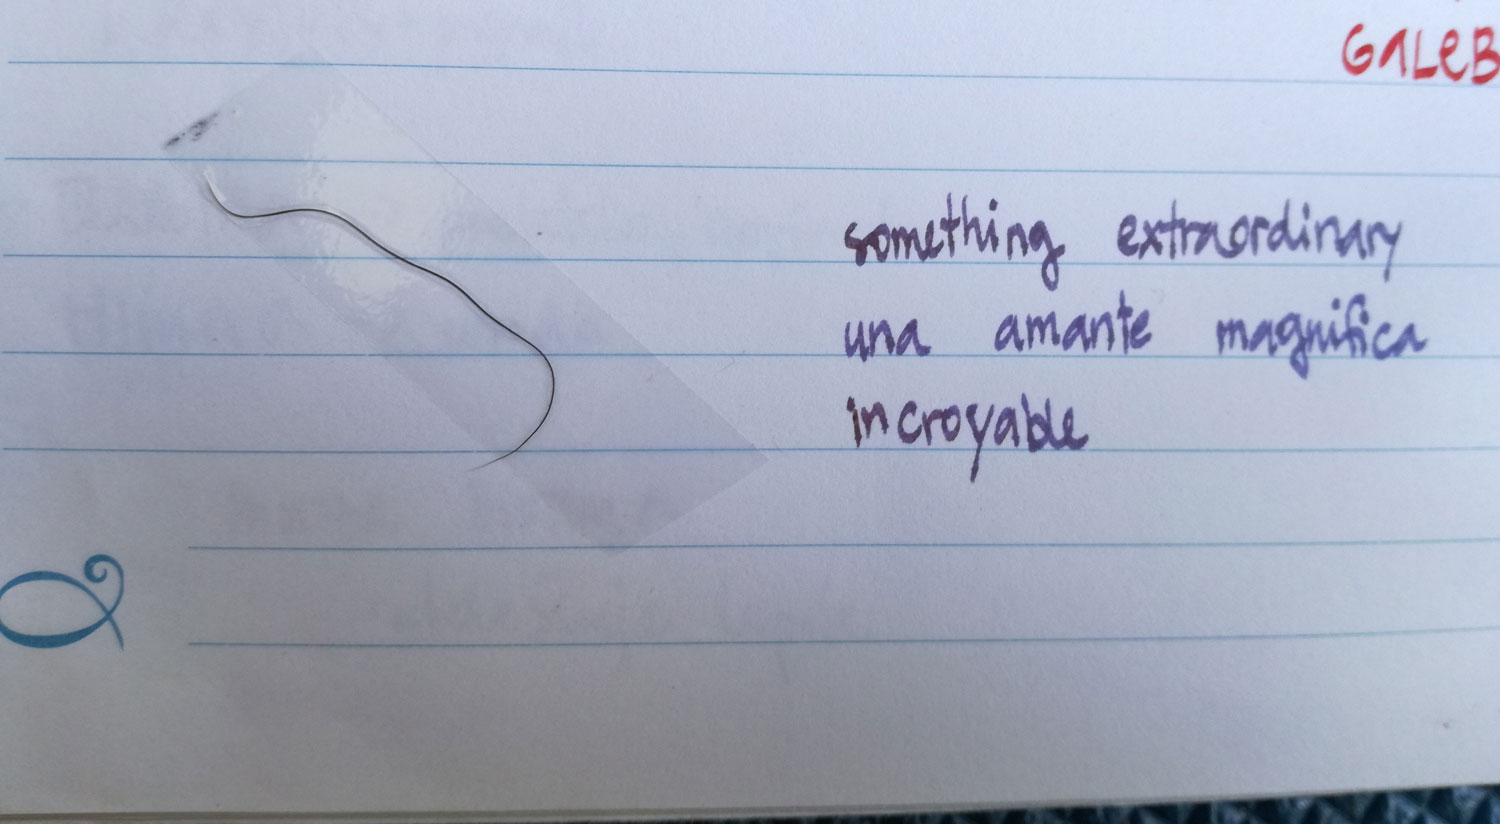 GALEB
something extraordinary
una amante magnifica
incroyable